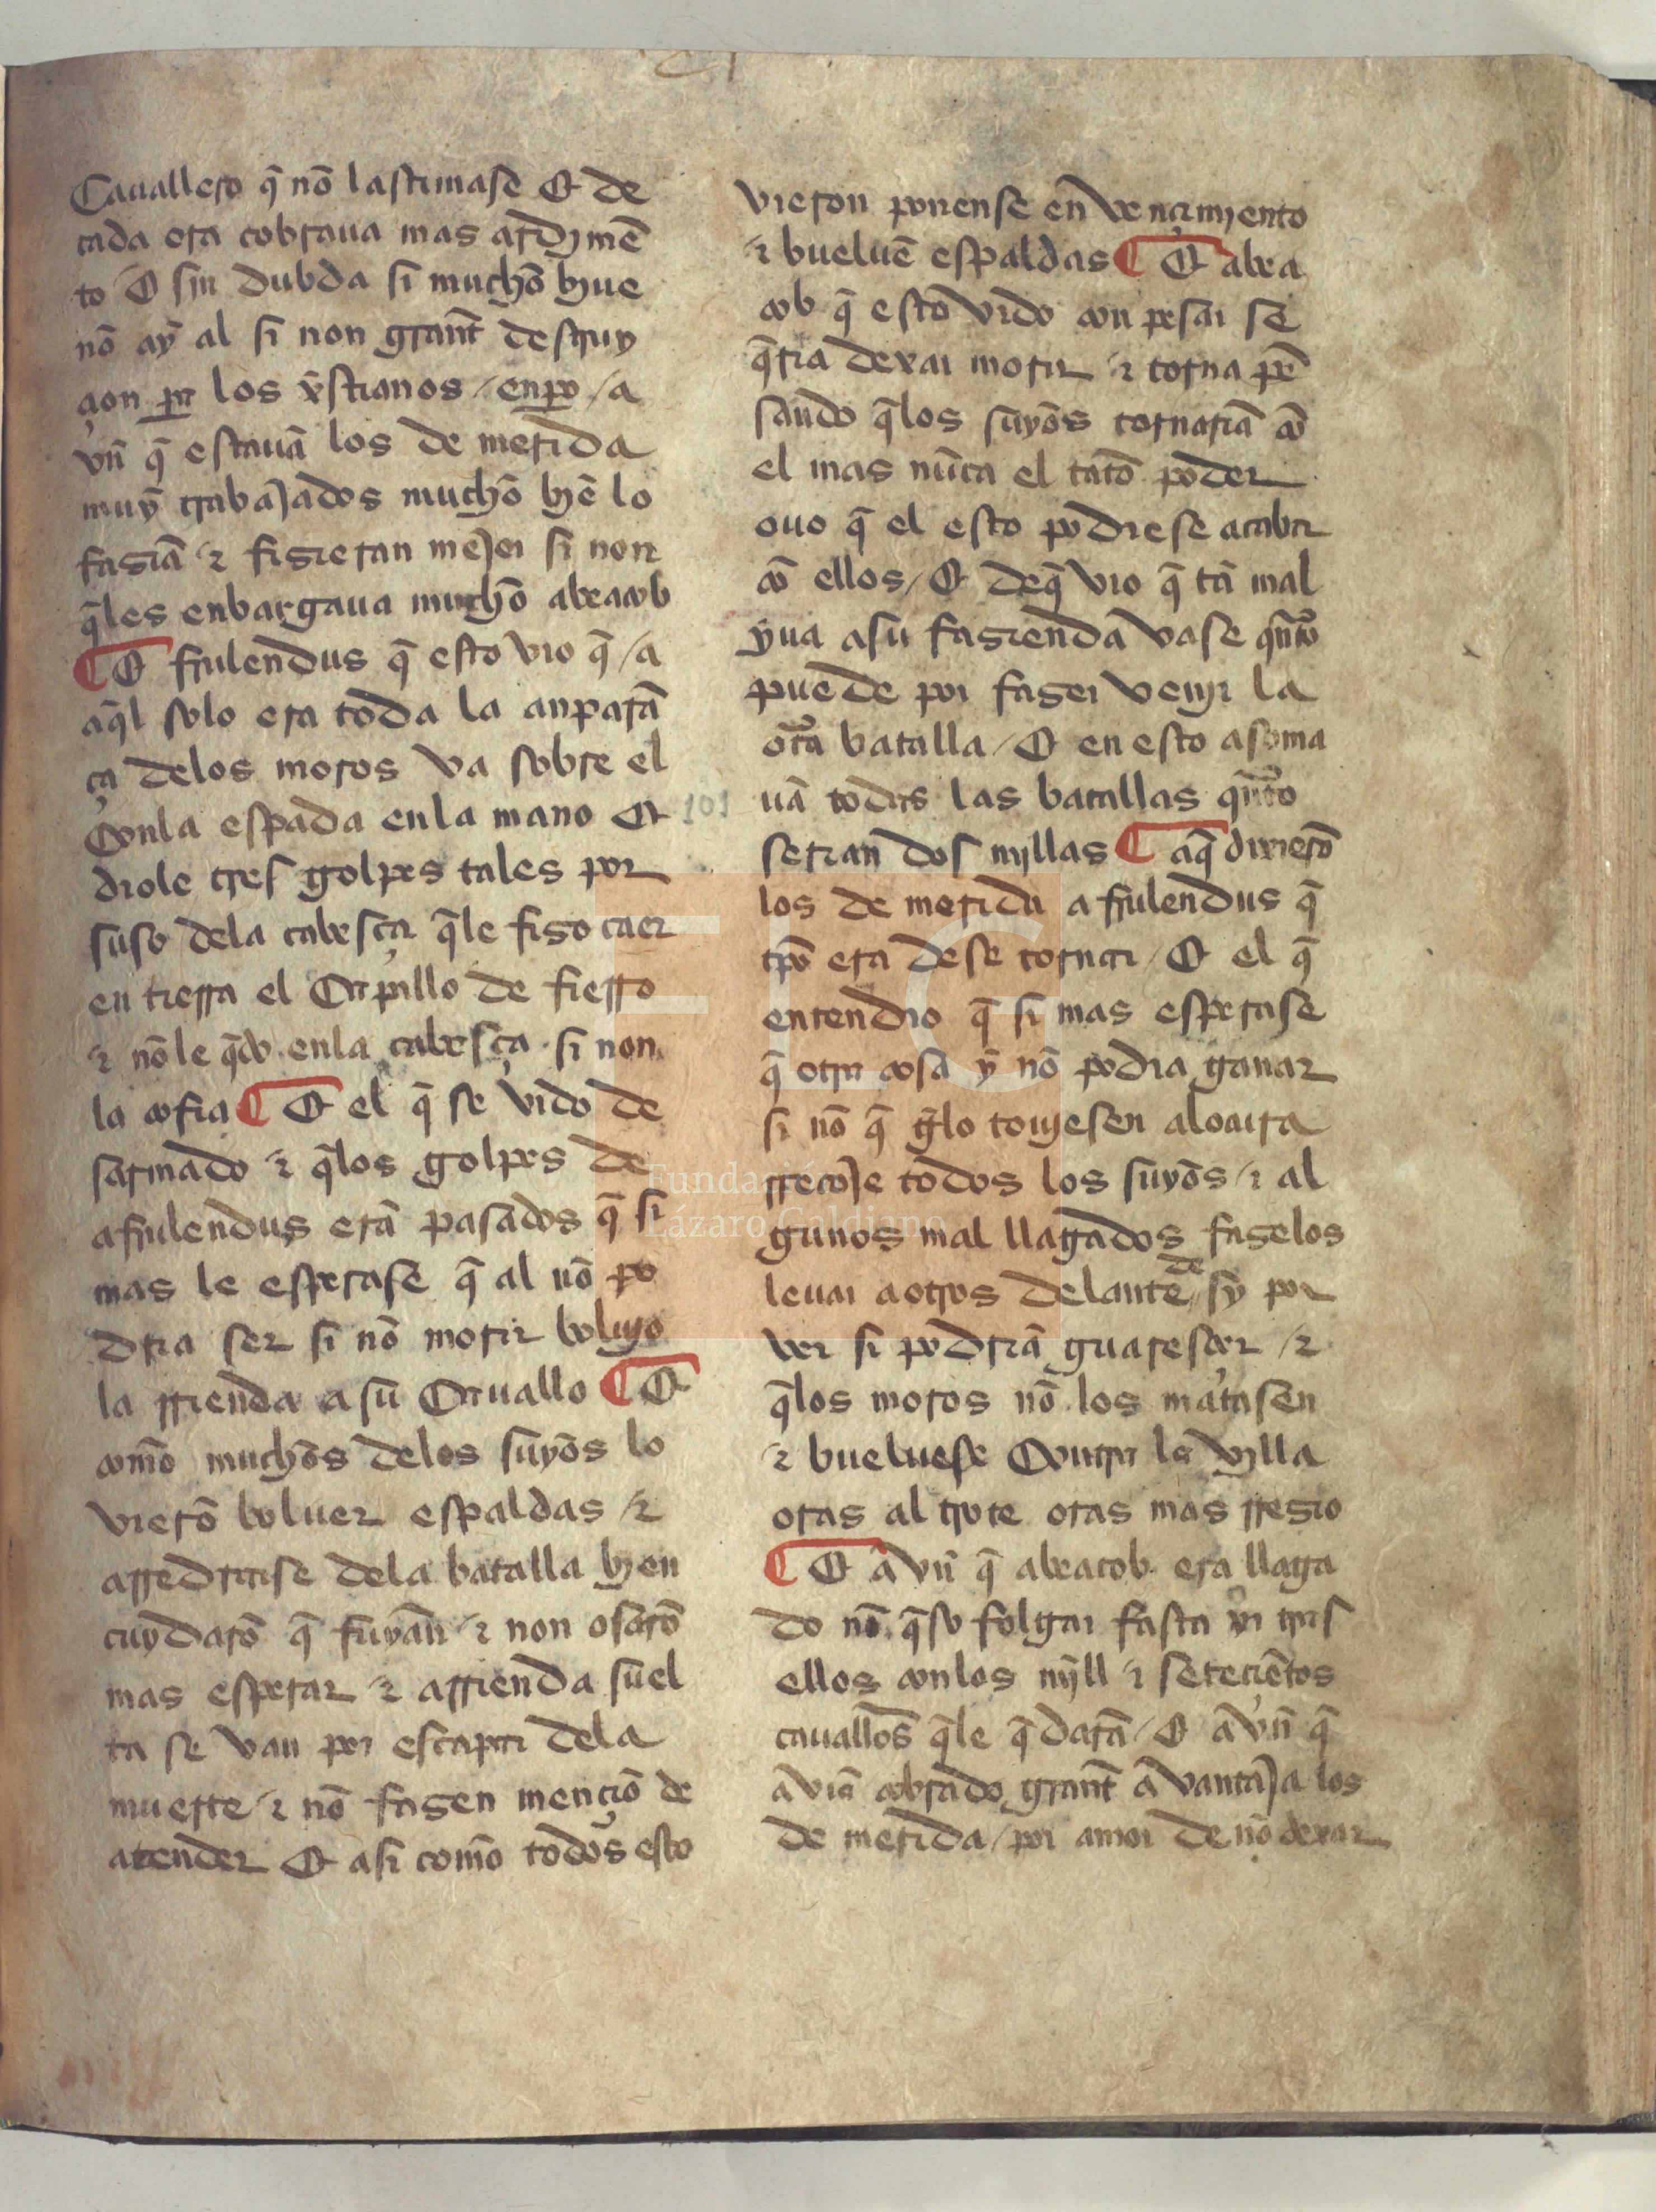 Cauallero q̄ nō lastimase Et de
cada ora cobraua mas ardymē
to E sin dubda si muchō byue
nō aȳ al si non grañt destruy
çion pa los xp̄stianos / enpo / a
vn̄ q̄ estauā los de merida
muȳ trabajados muchō byē lo
fasiā ⁊ fisieran mejor si non
q̄les enbargaua muchō abeacob
¶ Et frulendus q̄ esto vio q̄ / a
aq̄l solo era toda la anparā
ça delos moros va sobre el
Conla espada enla mano Et
diole tres golpes tales por
suso dela cabesça q̄le fiso caer
en tierra el Capillo de fierro
⁊ nō le q̄do enla cabesça si non
la cofia ¶ Et el q̄ se vido de
sarmado ⁊ q̄los golpes de
afrulendus erā pasados q̄ si
mas le esperase q̄ al nō po
dria ser si nō morir boluyo
la rrienda a su Cauallo ¶ Et
com̄o muchōs delos suyōs lo
vierō boluer espaldas / ⁊
arredrarse dela batalla byen
cuydarō q̄ fuyan̄ ⁊ non osarō
mas esperar ⁊ arrienda suel
ta se van por escapar dela
muerte / ⁊ nō fasen mençiō de
atender Et asi com̄o todos esto
vieron ponense en vençimyento
⁊ bueluē espaldas ¶ Et abea
cob q̄ esto vido con pesar se
q̄ria dexar morir ⁊ torna pē
sando q̄los suyōs tornariā cō
el mas nūca el tātō poder
ouo q̄ el esto podiese acabar
cō ellos / Et deq̄ vio q̄ tā mal
ȳua asu fasienda vase qn̄to
puede por faser venir la
otra batalla / Et en esto asoma
uā todas las batallas qn̄to
serian dos myllas ¶ aq̄ dixierō
los de merida a frulendus q̄
tp̄o era dese tornar / Et el q̄
entendio q̄ si mas esperase
q̄ otra cosa ȳ nō podia ganar
si nō q̄ gelo touyesen alocura
rrecoje todos los suyōs / ⁊ al
gunos mal llagados faselos
leuar aotros delante de sȳ por
ver si podriā guaresçer / ⁊
q̄los moros nō los matasen
⁊ bueluese Contra la vylla
oras al trote oras mas rresio
¶ Et avn̄ q̄ abeacob era llaga
do nō q̄so folgar fasta yr tras
ellos conlos myll ⁊ seteçiētos
cauallos̄ q̄le q̄darā / Et avn̄ q̄
aviā cobrado grañt avantaja los
de merida / por amor de nō dexar